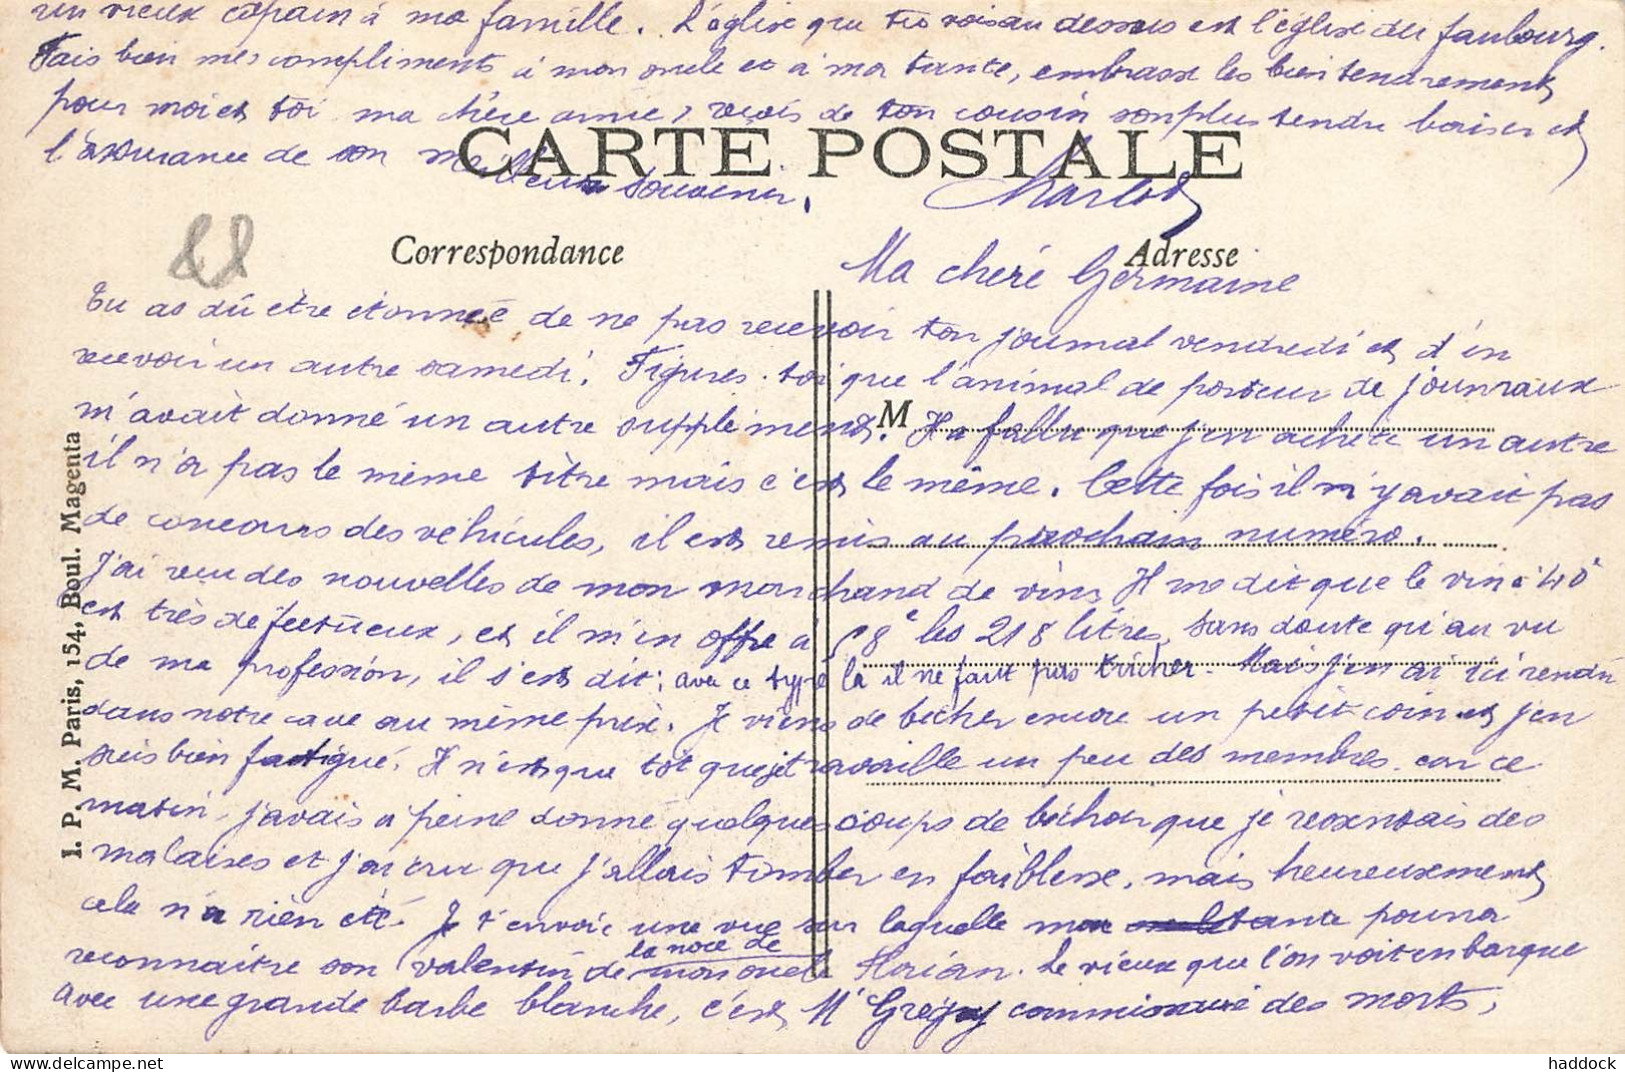 un vieux copain à ma famille. L'église que tu vois au dessus est l'église du faubourg.
Fais bien mes compliments à mon oncle et à ma tante, embrasse les bien tendrement
pour moi et toi ma chère amie, reçois de ton cousin son plus tendre baiser et
l'assurance de son meilleur souvenir.
CARTE POSTALE
Charlot
Correspondance
Adresse
Ma chère Germaine
Tu as dû être étonnée de ne pas recevoir ton journal vendredi et d'en
recevoir un autre samedi. Figures-toi que l'animal de porteur de journaux
m'avait donné un autre supplément. Il a fallu que j'en achète un autre
M
il n'a pas le même titre mais c'est le même. Cette fois il n'y avait pas
de concours des véhicules, il est remis au prochain numéro.
J'ai reçu des nouvelles de mon marchand de vins Il me dit que le vin à 40
est très défectueux, et il m'en offre à 58 les 218 litres, sans doute qu'au vu
de ma profession, il s'est dit: avec ce type là il ne faut pas tricher. Mais j'en ai ici rendu
dans notre cave au même prix. Je viens de bêcher encore un petit coin et j'en
suis bien fatigué. Il n'est que tôt que je travaille un peu des membres car ce
matin, j'avais à peine donné quelques coups de bêche que je ressentais des
malaises et j'ai cru que j'allais tomber en faiblesse, mais heureusement
cela n'a rien été. Je t'envoie une vue sur laquelle ma tante pourra
reconnaître son valentin de la noce de mon oncle Florian. Le vieux que l'on voit en barque
avec une grande barbe blanche, c'est Mr Grégoy commissaire des morts,
I. P. M. Paris, 154, Boul. Magenta
haddock